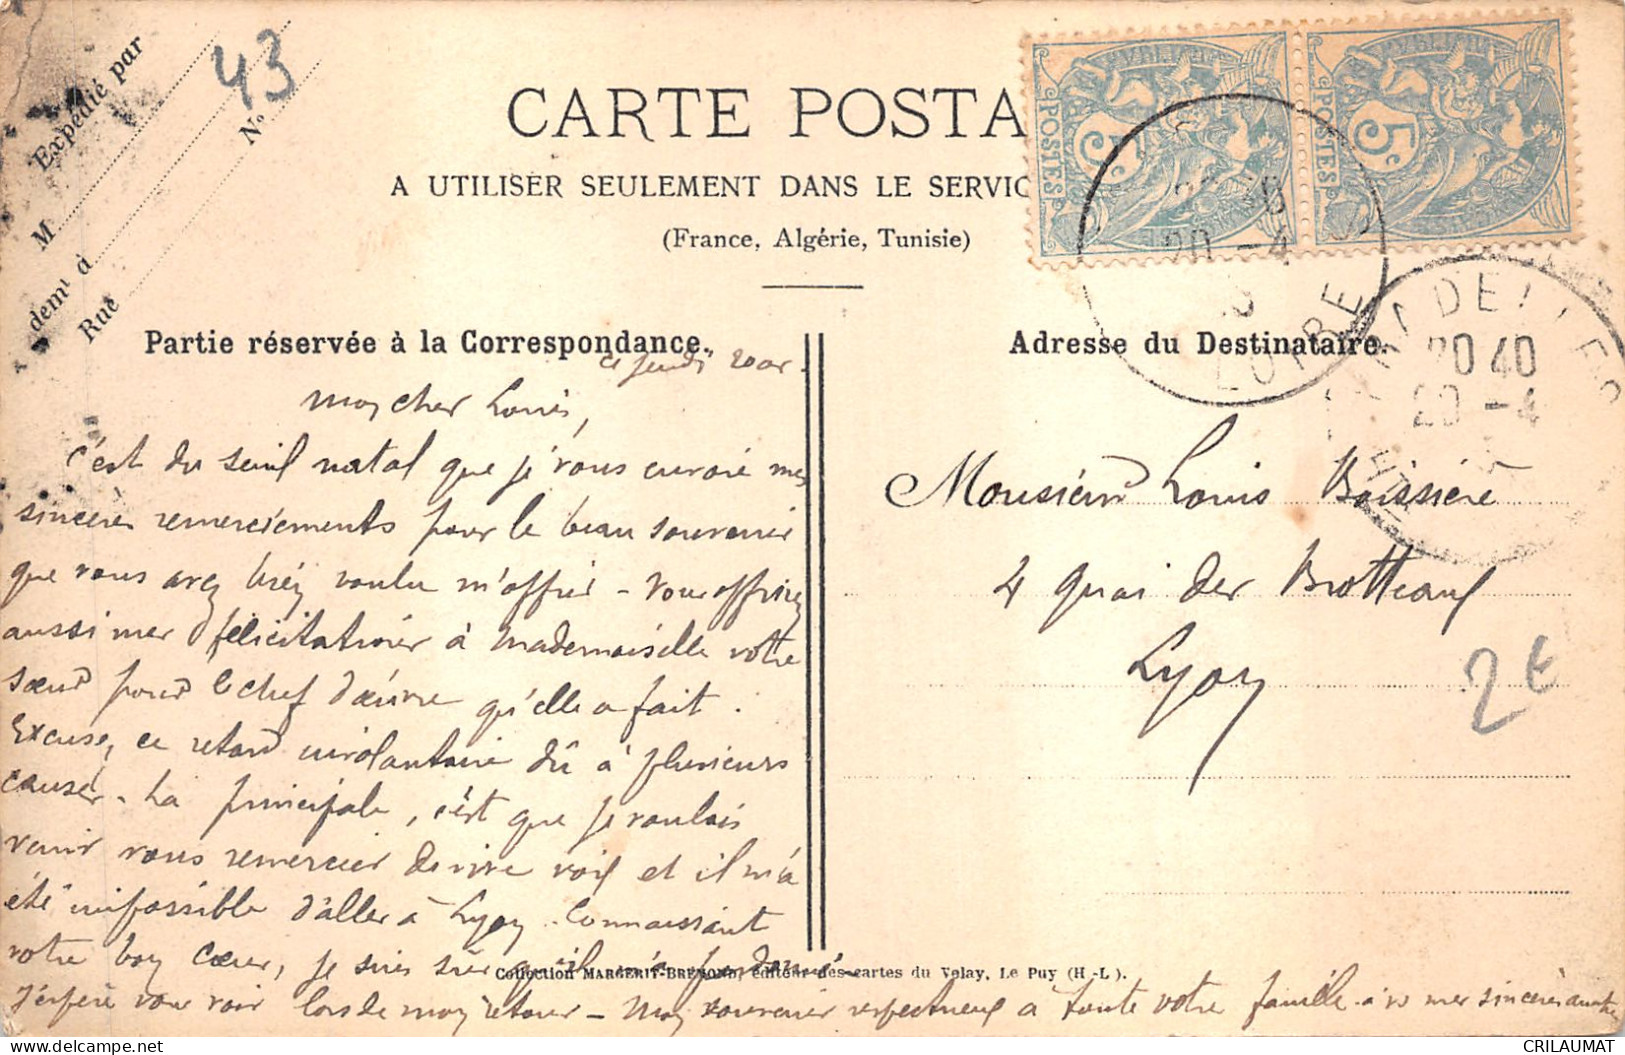 Expédié par
M
demt à
Rue
No
43
CARTE POSTA
A UTILISER SEULEMENT DANS LE SERVIC
(France, Algérie, Tunisie)
POSTES 5c
POSTES 5c
20 -4
LOIRE
20 40
20 -4
Partie réservée à la Correspondance.
ce jeudi 20 avr.
Mon cher Louis,
C'est du seuil natal que je vous envoie mes
sincères remerciements pour le beau souvenir
que vous avez bien voulu m'offrir - Vous offrirez
aussi mes félicitations à Mademoiselle votre
sœur pour le chef d'œuvre qu'elle a fait.
Excuse, ce retard involontaire dû à plusieurs
causes. La principale, c'est que je voulais
venir vous remercier de vive voix et il m'a
été impossible d'aller à Lyon. Connaissant
votre bon cœur, je suis sûr qu'il m'a pardonné
J'espère vous voir lors de mon retour - Mon souvenir respectueux à toute votre famille à vs mes sincères
Collection MARGERIT-BREMOND, éditeur des cartes du Velay, Le Puy (H.-L.).
Adresse du Destinataire.
Monsieur Louis Boissière
4 quai des Brotteaux
Lyon
2€
CRILAUMAT